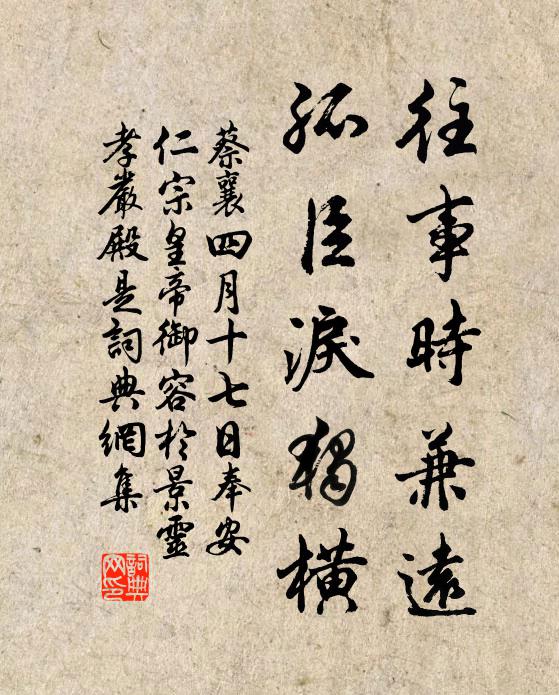 往事時兼遠
孤臣淚獨橫
蔡襄四月十七日奉安
仁宗皇帝御容於景靈
孝嚴殿是詞典網集
詞典
网印